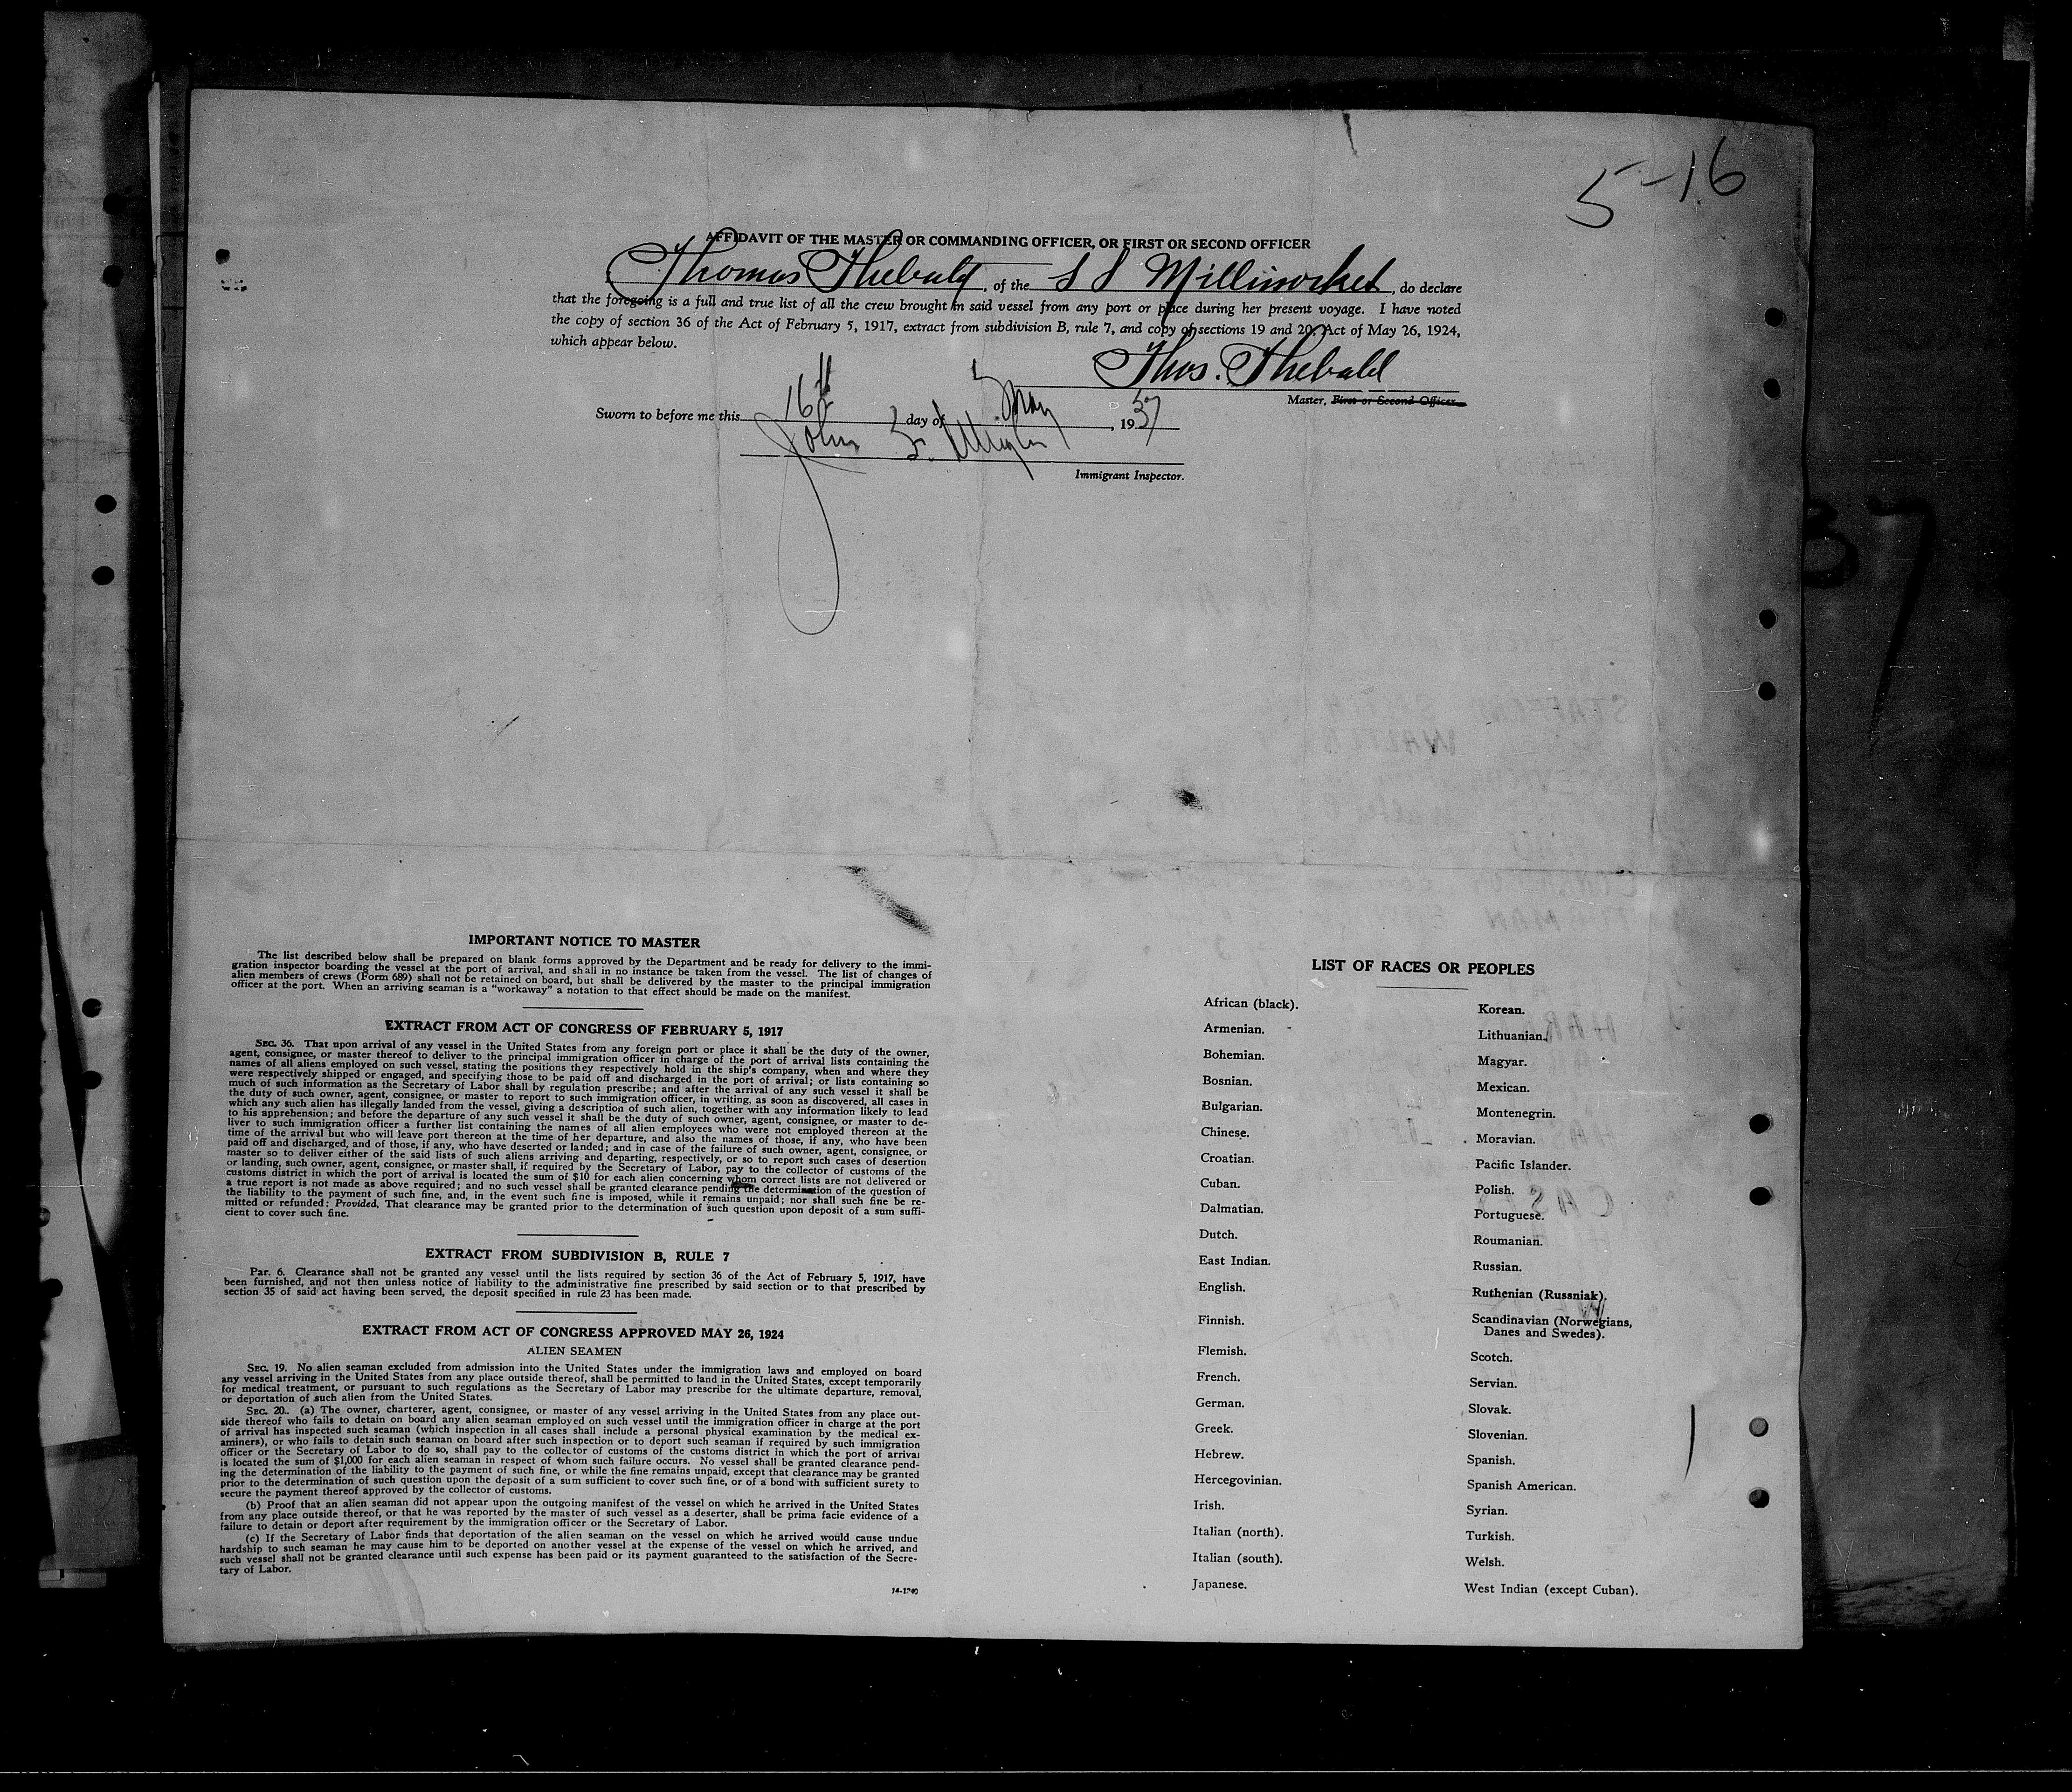 5-16
AFFIDAVIT OF THE MASTER OR COMMANDING OFFICER, OR FIRST OR SECOND OFFICER
Thomas Thebald, of the S S Millinocket, do declare
that the foregoing is a full and true list of all the crew brought in said vessel from any port or place during her present voyage. I have noted
the copy of section 36 of the Act of February 5, 1917, extract from subdivision B, rule 7, and copy of sections 19 and 20, Act of May 26, 1924,
which appear below.
Thos. Thebald
Master, First or Second Officer.
Sworn to before me this 16th day of May, 1937
John
Immigrant Inspector.
37
IMPORTANT NOTICE TO MASTER
The list described below shall be prepared on blank forms approved by the Department and be ready for delivery to the immi-
gration inspector boarding the vessel at the port of arrival, and shall in no instance be taken from the vessel. The list of changes of
alien members of crews (Form 689) shall not be retained on board, but shall be delivered by the master to the principal immigration
officer at the port. When an arriving seaman is a "workaway" a notation to that effect should be made on the manifest.
EXTRACT FROM ACT OF CONGRESS OF FEBRUARY 5, 1917
SEC. 36. That upon arrival of any vessel in the United States from any foreign port or place it shall be the duty of the owner,
agent, consignee, or master thereof to deliver to the principal immigration officer in charge of the port of arrival lists containing the
names of all aliens employed on such vessel, stating the positions they respectively hold in the ship's company, when and where they
were respectively shipped or engaged, and specifying those to be paid off and discharged in the port of arrival; or lists containing so
much of such information as the Secretary of Labor shall by regulation prescribe; and after the arrival of any such vessel it shall be
the duty of such owner, agent, consignee, or master to report to such immigration officer, in writing, as soon as discovered, all cases in
which any such alien has illegally landed from the vessel, giving a description of such alien, together with any information likely to lead
to his apprehension; and before the departure of any such vessel it shall be the duty of such owner, agent, consignee, or master to de-
liver to such immigration officer a further list containing the names of all alien employees who were not employed thereon at the
time of the arrival but who will leave port thereon at the time of her departure, and also the names of those, if any, who have been
paid off and discharged, and of those, if any, who have deserted or landed; and in case of the failure of such owner, agent, consignee, or
master so to deliver either of the said lists of such aliens arriving and departing, respectively, or so to report such cases of desertion
or landing, such owner, agent, consignee, or master shall, if required by the Secretary of Labor, pay to the collector of customs of the
customs district in which the port of arrival is located the sum of $10 for each alien concerning whom correct lists are not delivered or
a true report is not made as above required; and no such vessel shall be granted clearance pending the determination of the question of
the liability to the payment of such fine, and, in the event such fine is imposed, while it remains unpaid; nor shall such fine be re-
mitted or refunded: Provided, That clearance may be granted prior to the determination of such question upon deposit of a sum suffi-
cient to cover such fine.
EXTRACT FROM SUBDIVISION B, RULE 7
Par. 6. Clearance shall not be granted any vessel until the lists required by section 36 of the Act of February 5, 1917, have
been furnished, and not then unless notice of liability to the administrative fine prescribed by said section or to that prescribed by
section 35 of said act having been served, the deposit specified in rule 23 has been made.
EXTRACT FROM ACT OF CONGRESS APPROVED MAY 26, 1924
ALIEN SEAMEN
SEC. 19. No alien seaman excluded from admission into the United States under the immigration laws and employed on board
any vessel arriving in the United States from any place outside thereof, shall be permitted to land in the United States, except temporarily
for medical treatment, or pursuant to such regulations as the Secretary of Labor may prescribe for the ultimate departure, removal,
or deportation of such alien from the United States.
SEC. 20. (a) The owner, charterer, agent, consignee, or master of any vessel arriving in the United States from any place out-
side thereof who fails to detain on board any alien seaman employed on such vessel until the immigration officer in charge at the port
of arrival has inspected such seaman (which inspection in all cases shall include a personal physical examination by the medical ex-
aminers), or who fails to detain such seaman on board after such inspection or to deport such seaman if required by such immigration
officer or the Secretary of Labor to do so, shall pay to the collector of customs of the customs district in which the port of arrival
is located the sum of $1,000 for each alien seaman in respect of whom such failure occurs. No vessel shall be granted clearance pend-
ing the determination of the liability to the payment of such fine, or while the fine remains unpaid, except that clearance may be granted
prior to the determination of such question upon the deposit of a sum sufficient to cover such fine, or of a bond with sufficient surety to
secure the payment thereof approved by the collector of customs.
(b) Proof that an alien seaman did not appear upon the outgoing manifest of the vessel on which he arrived in the United States
from any place outside thereof, or that he was reported by the master of such vessel as a deserter, shall be prima facie evidence of a
failure to detain or deport after requirement by the immigration officer or the Secretary of Labor.
(c) If the Secretary of Labor finds that deportation of the alien seaman on the vessel on which he arrived would cause undue
hardship to such seaman he may cause him to be deported on another vessel at the expense of the vessel on which he arrived, and
such vessel shall not be granted clearance until such expense has been paid or its payment guaranteed to the satisfaction of the Secre-
tary of Labor.
14-1240
LIST OF RACES OR PEOPLES
African (black).
Armenian.
Bohemian.
Bosnian.
Bulgarian.
Chinese.
Croatian.
Cuban.
Dalmatian.
Dutch.
East Indian.
English.
Finnish.
Flemish.
French.
German.
Greek.
Hebrew.
Hercegovinian.
Irish.
Italian (north).
Italian (south).
Japanese.
Korean.
Lithuanian.
Magyar.
Mexican.
Montenegrin.
Moravian.
Pacific Islander.
Polish.
Portuguese.
Roumanian.
Russian.
Ruthenian (Russniak).
Scandinavian (Norwegians,
Danes and Swedes).
Scotch.
Servian.
Slovak.
Slovenian.
Spanish.
Spanish American.
Syrian.
Turkish.
Welsh.
West Indian (except Cuban).